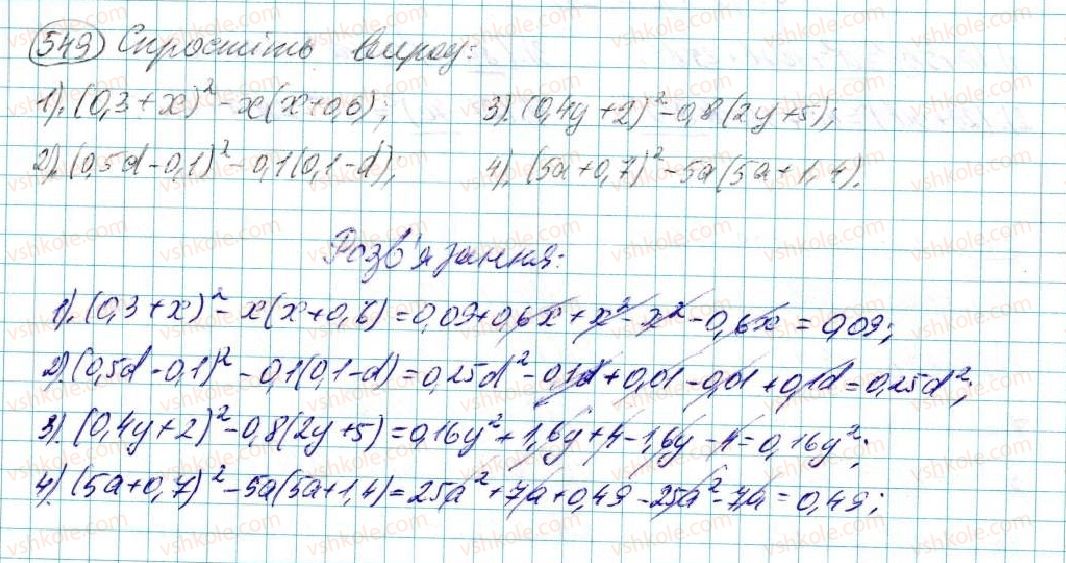 549 Спростіть вираз:
1). (0,3+x)² - x(x+0,6); 3). (0,4y+2)² - 0,8(2y+5);
2). (0,5d-0,1)² - 0,1(0,1-d); 4). (5a+0,7)² - 5a(5a+1,4).
Розв'язання:
1). (0,3+x)² - x(x+0,6) = 0,09+0,6x+x²-x²-0,6x = 0,09;
2). (0,5d-0,1)² - 0,1(0,1-d) = 0,25d² - 0,1d + 0,01 - 0,01 + 0,1d = 0,25d²;
3). (0,4y+2)² - 0,8(2y+5) = 0,16y² + 1,6y + 4 - 1,6y - 4 = 0,16y²;
4). (5a+0,7)² - 5a(5a+1,4) = 25a² + 7a + 0,49 - 25a² - 7a = 0,49;
vshkole.com